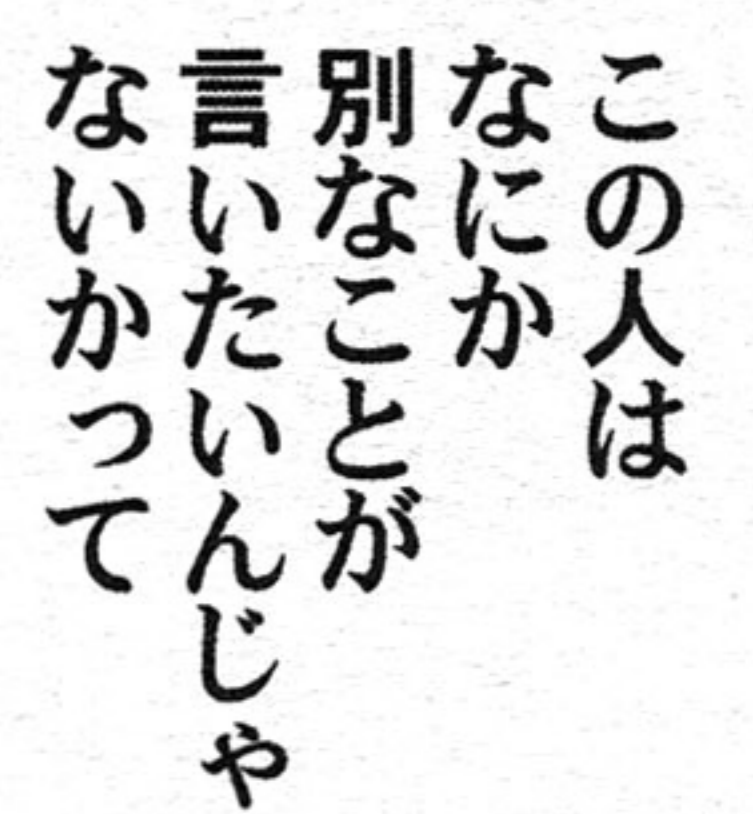 この人は
なにか
別なことが
言いたいんじゃ
ないかって